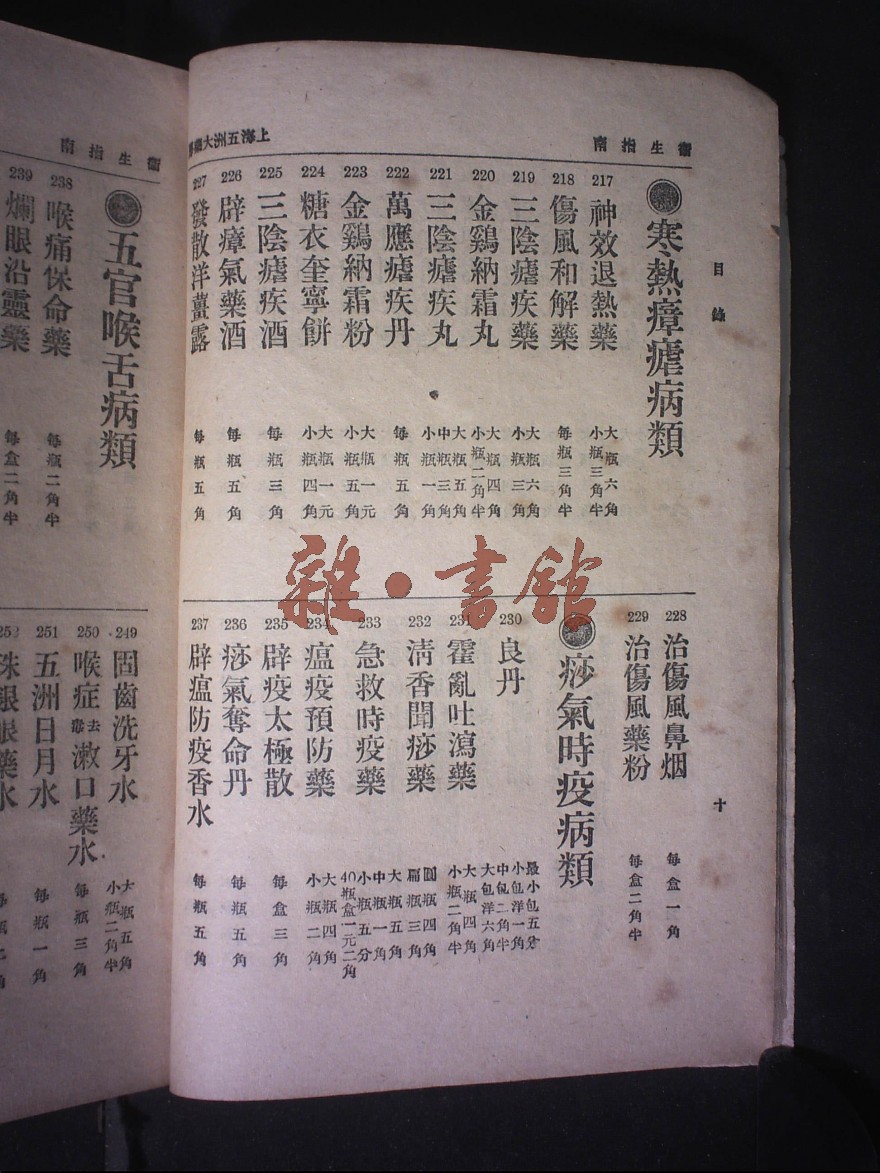 衛生指南
上海五洲大藥
目錄
十
寒熱瘴瘧病類
217 神效退熱藥 大瓶六角 小瓶三角半
218 傷風和解藥 每瓶三角半
219 三陰瘧疾藥 大瓶六角 小瓶三角
220 金鷄納霜丸 大瓶四角 小瓶二角半
221 三陰瘧疾丸 大瓶五角 中瓶三角 小瓶一角
222 萬應瘧疾丹 每瓶五角
223 金鷄納霜粉 大瓶一元 小瓶五角
224 糖衣奎寧餅 大瓶一元 小瓶四角
225 三陰瘧疾酒 每瓶三角
226 辟瘴氣藥酒 每瓶五角
227 發散洋薑露 每瓶五角
228 治傷風鼻烟 每盒一角
229 治傷風藥粉 每盒二角半
痧氣時疫病類
230 良丹 最小包五分 小包洋一角 中包二角半 大包洋六角
231 霍亂吐瀉藥 大瓶四角 小瓶二角半
232 淸香聞痧藥 圓瓶四角 扁瓶三角
233 急救時疫藥 大瓶五角 中瓶一角 小瓶五分 40瓶盒一元二角
234 瘟疫預防藥 大瓶四角 小瓶二角
235 辟疫太極散 每盒三角
236 痧氣奪命丹 每瓶五角
237 辟瘟防疫香水 每瓶五角
雜·書館
衛生指南
五官喉舌病類
238 喉痛保命藥 每瓶二角半
239 爛眼沿靈藥 每盒二角半
249 固齒洗牙水 大瓶五角 小瓶二角半
250 喉症去毒漱口藥水 每瓶三角
251 五洲日月水 每瓶一角
眼藥水